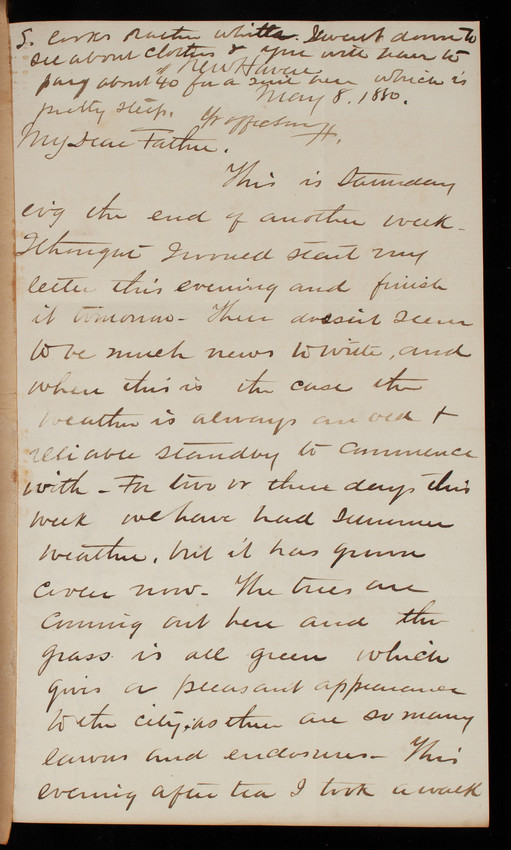 S. looks rather white. I went down to
see about clothes & you will have to
pay about $40 for a suit here which is
pretty steep. Yr affec Son H.
New Haven
May 8. 1880.
My Dear Father.
This is Saturday
evg the end of another week -
I thought I would start my
letter this evening and finish
it tomorrow - There doesn't seem
to be much news to write, and
when this is the case the
weather is always an old &
reliable standby to commence
with - For two or three days this
week we have had Summer
weather, but it has grown
cooler now - The trees are
coming out here and the
grass is all green which
gives a pleasant appearance
to the city, as there are so many
lawns and enclosures - This
evening after tea I took a walk